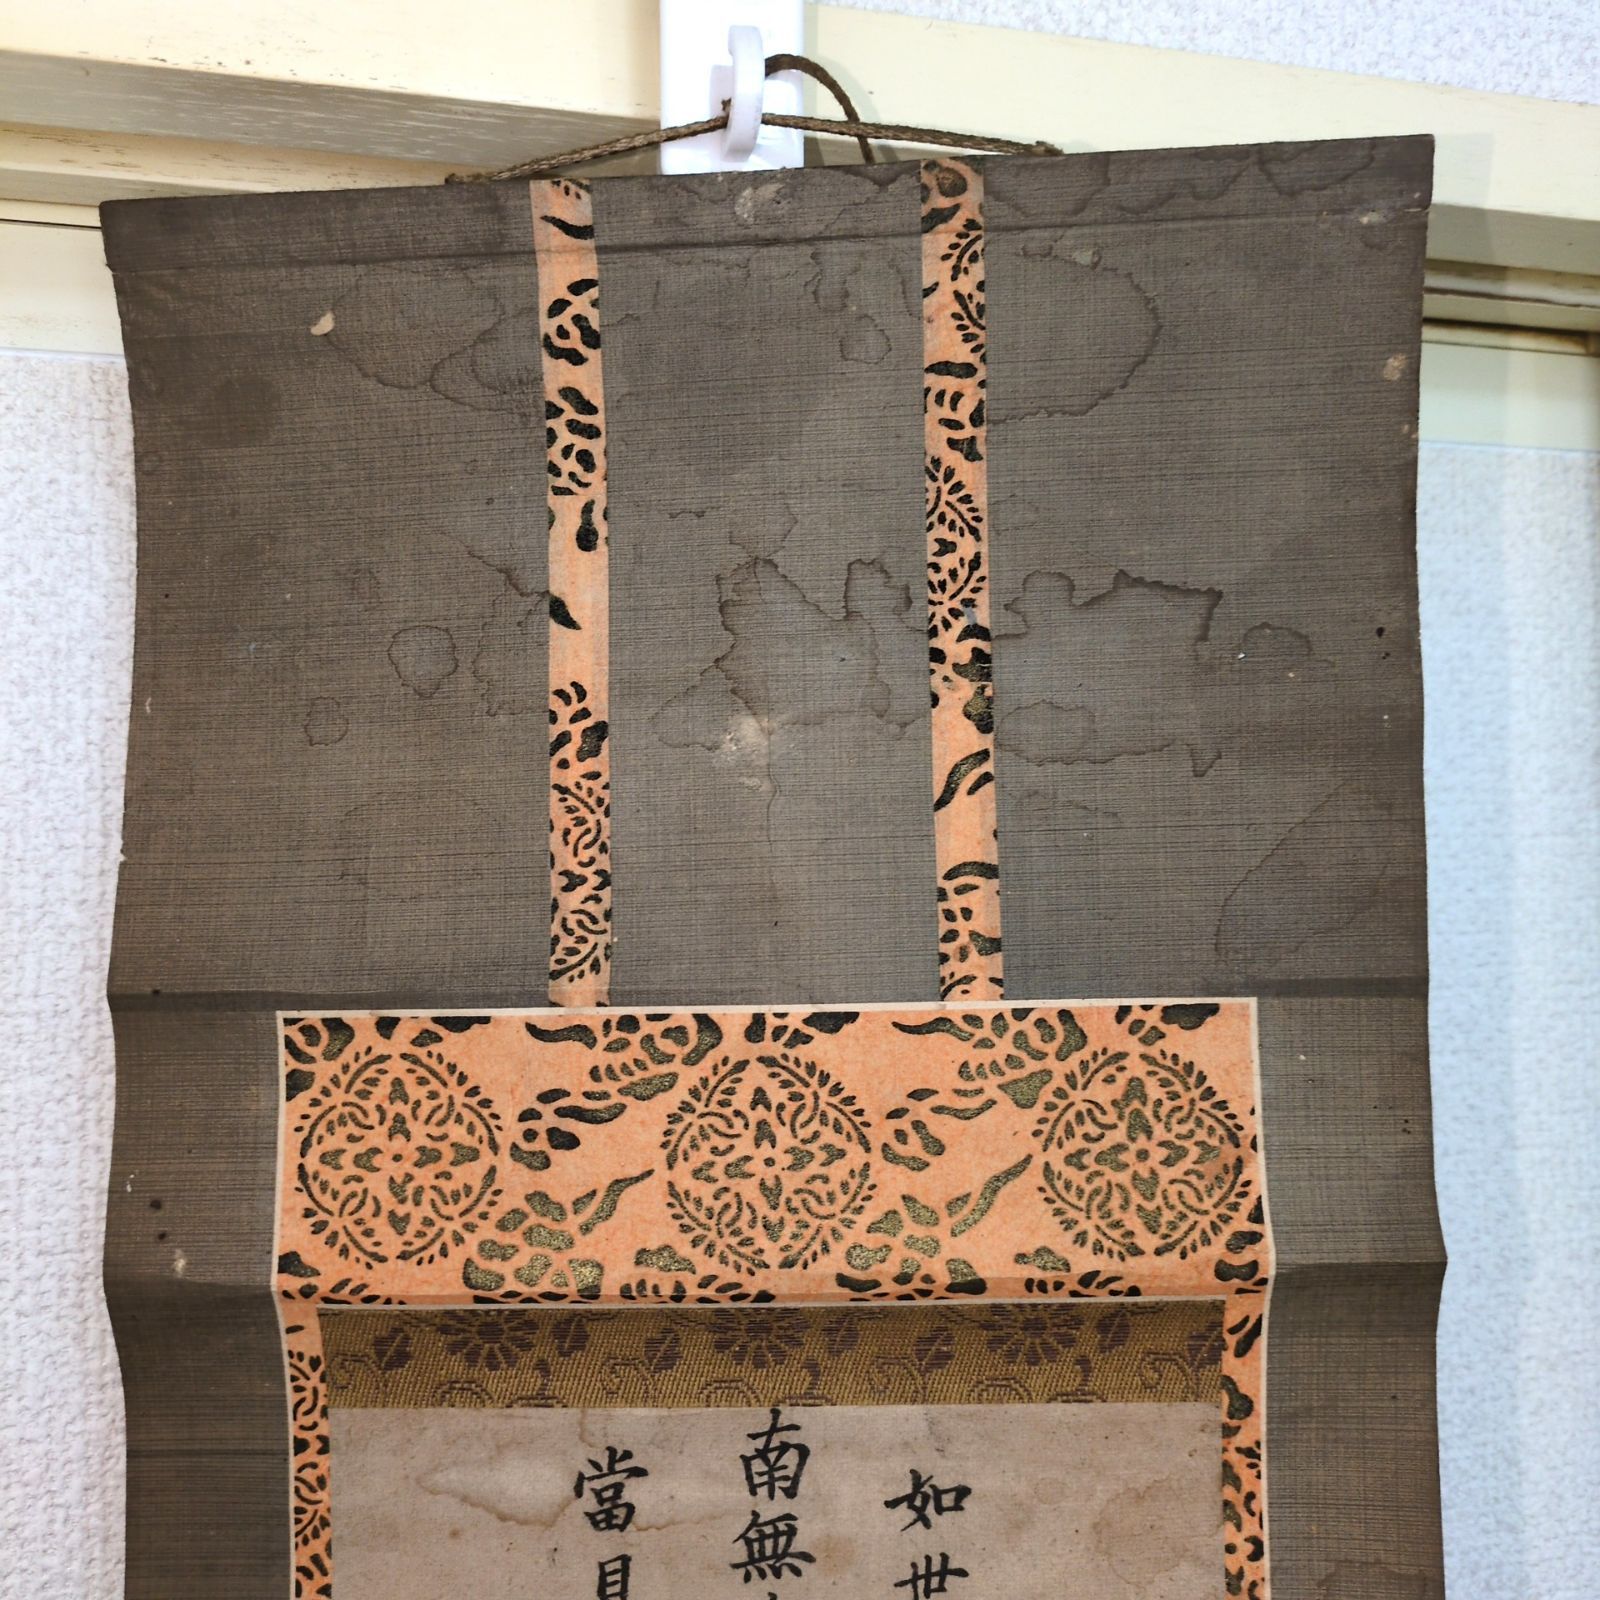 如世
南無
當